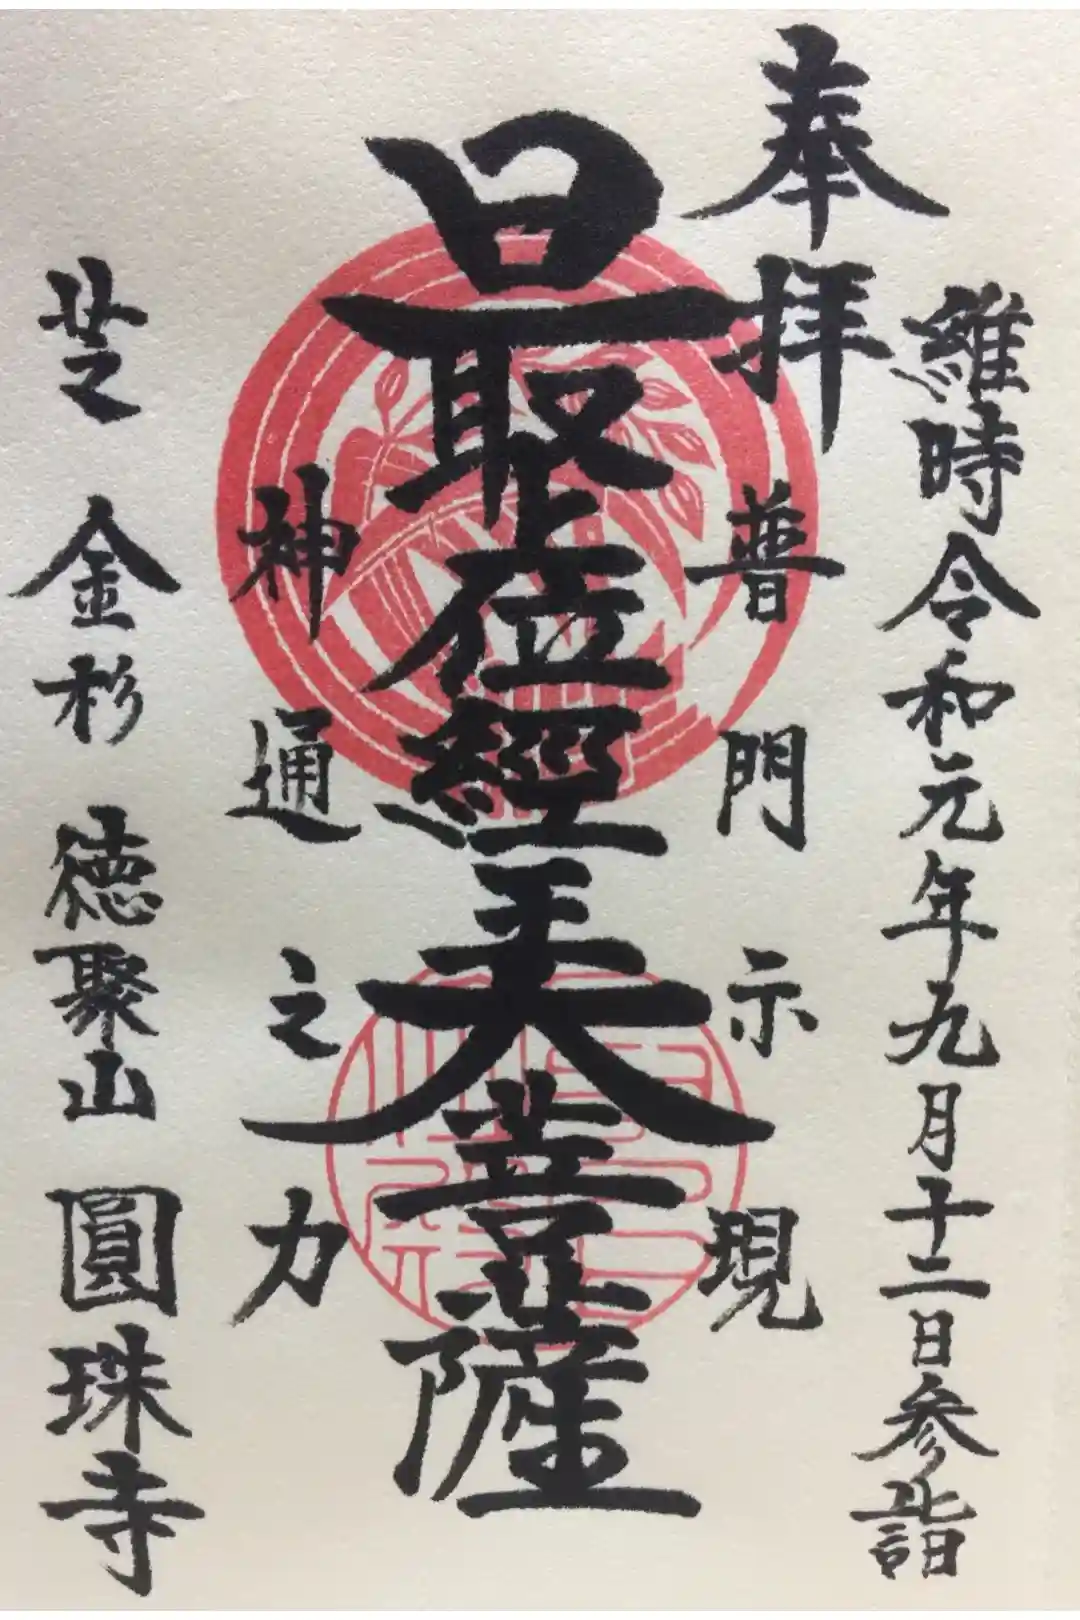 奉拝
維時令和元年九月十二日参詣
普門示現
最上位經王大菩薩
神通之力
芝金杉
徳聚山圓珠寺